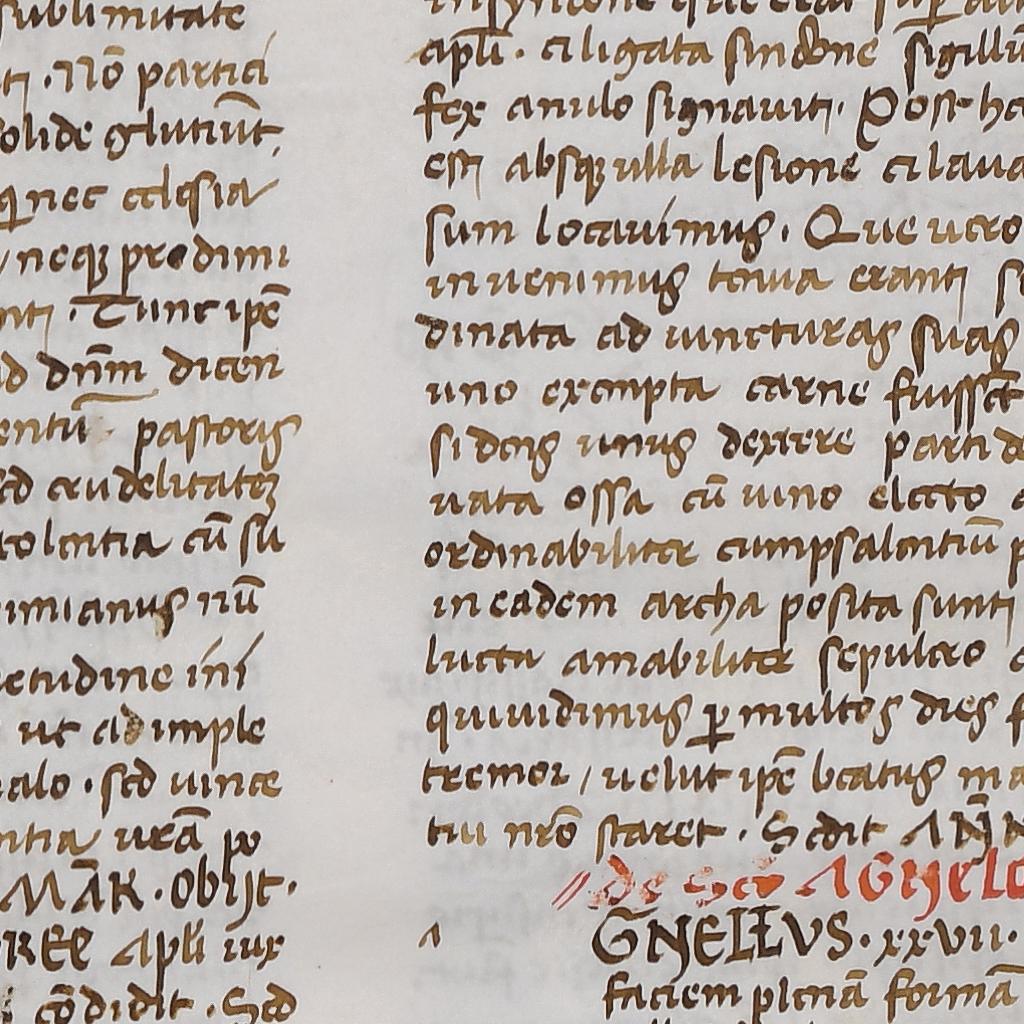 sublimitate
ti · nō partici
olide glutiūt,
nec cclesia
neqꝫ prodimi
nti · Tunc ipē
d dn̄m dicen
entū pastoris
ed crudelitatē
tolentia cū su
imianus nū
etudine ini
ut adimple
alo · sed uince
ntia urā po
MAR̄ · Obijt ·
REE Apłi iux
cōdidit · Sed
apłi · ci ligata sindone sigillū
fex anulo signauiti · Post ha
esti absqꝫ ulla lesione ci laua
sum locauimus · Que uero
inuenimus tenua eranti
dinata ad iuncturas suas
uno exempta carne fuisset
si dens unus dextere parti de
uata ossa cū uino electo
ordinabiliter cumpsalentiū
in eadem archa posita sunti
lucta amabiliter sepulcro
quiuidimus ꝑ multos dies
tremor / uelut ipē beatus ma
tiu nrō staret · Sedit ANN
// de Scō AGNELL
a
GNELLVS · xxvii ·
faciem plenā formā